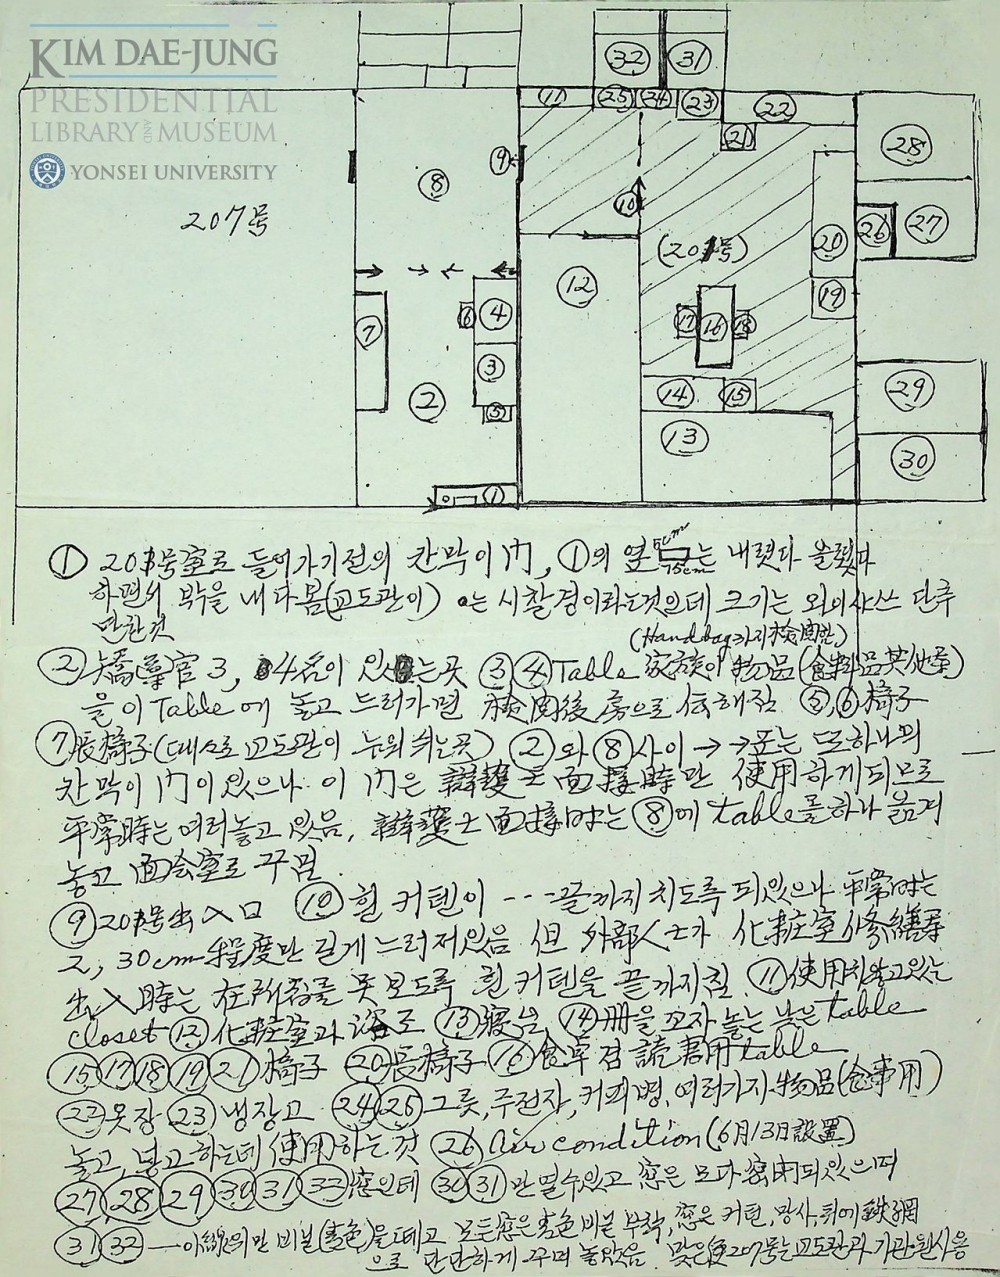 KIM DAE-JUNG
PRESIDENTIAL
LIBRARY AND MUSEUM
YONSEI UNIVERSITY
32 31
11 25 24 23 22
21
28
9
8
207号
10
26 27
(201号)
20
12
19
6 4
7
17 16 18
3
2
5
14 15
29
13
30
1
① 201号室로 들어가기전의 칸막이門, ①의 옆 5cm 15cm는 내렸다 올렸다
하면서 밖을 내다봄(교도관이) o는 시찰경이라는것인데 크기는 와이샤쓰 단추
만한것
(Handbag까지検閲함)
② 矯導官 3, 4名이 있는곳 ③④Table 家族이 物品(食料品其他等)
을 이 Table에 놓고 드러가면 検閲後 房으로 伝해짐 ⑤,⑥椅子
⑦長椅子(대체로 교도관이 누워 쉬는곳) ②와 ⑧사이 → →표는 또하나의
칸막이 門이있으나 이 門은 辯護士 面接時만 使用하게되므로
平常時는 여러놓고 있음, 辯護士 面接時는 ⑧에 table를 하나 옮겨
놓고 面会室로 꾸밈
⑨201号出入口 ⑩흰 커텐이 --끝까지 치도록 되있으나 平常時는
2, 30cm程度만 길게 느러저있음 但 外部人士가 化粧室修繕等
出入時는 在所者를 못보도록 흰 커텐을 끝까지침 ⑪使用치않고있는
closet ⑫化粧室과 浴조 ⑬寢台 ⑭冊을 꼬자 놓는 낮은 table
⑮⑰⑱⑲㉑椅子 ⑳長椅子 ⑯食卓 겸 読書用 table
㉒옷장 ㉓냉장고 ㉔㉕그릇, 주전자, 커피병, 여러가지 物品(食事用)
놓고, 넣고 하는데 使用하는 것 ㉖air condition(6月13日設置)
㉗ ㉘ ㉙ ㉚ ㉛ ㉜ 窓인데 ㉚㉛만 열수있고 窓은 모다 密閉되있으며
㉛㉜ 비닐(青色)을 떼고 모든窓은 青色 비닐 부착, 窓은 커텐, 망사, 뒤에 鉄網
으로 단단하게 꾸며 놓았음. 맞은便207号는 교도관과 기관원사용